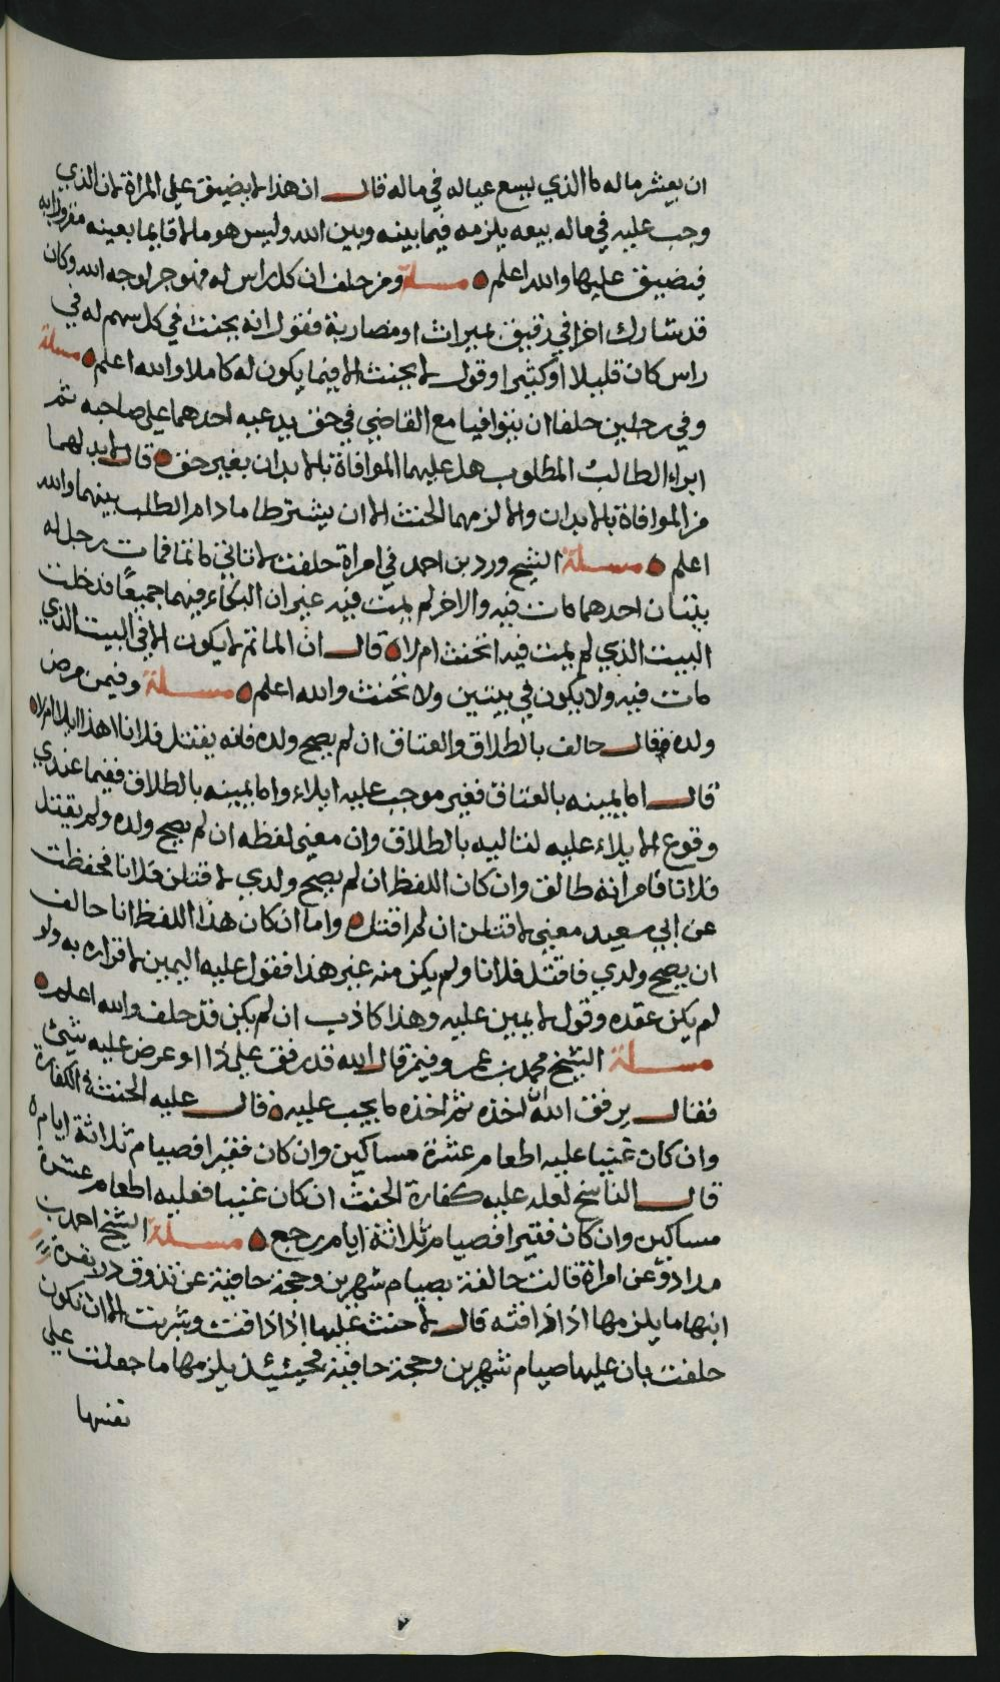 ان يعشر ماله كا الذي يسع عياله في ماله قال ان هذا لا يضيق على المراة لان الذي
وجب عليه في ماله بيعه يلزمه فيما بينه وبين الله وليس هو مالا قايما بعينه مقرولا به
فيضيق عليها والله اعلم مسلة ومن حلف ان كل راس له فهو حر لوجه الله وكان
قد شارك اخرا في رقيق بميراث او مضاربة فقول انه يحنث في كل سهم له في
راس كان قليلا او كثيرا وقول لا يحنث الا فيما يكون له كاملا والله اعلم مسلة
وفي رجلين حلفا ان يتوافيا مع القاضي في حق يدعيه احدهما على صاحبه ثم
ابراء الطالب المطلوب هل عليهما الموافاة بالابدان بغير حق قال لا بد لهما
من الموافاة بالابدان والا لزمهما الحنث الا ان يشترطا ما دام الطلب بينهما والله
اعلم مسلة الشيخ ورد بن احمد في امراة حلفت لا تاتي ماتما فمات رجل له
بيتان احدهما مات فيه والاخر لم يمت فيه غير ان البكاء فيهما جميعًا فدخلت
البيت الذي لم يمت فيه اتحنث ام لا قال ان الماتم لا يكون الا في البيت الذي
مات فيه ولا يكون في بيتين ولا تحنث والله اعلم مسلة وفيمن مرض
ولده فقال حالف بالطلاق والعتاق ان لم يصح ولده فانه يقتل فلانا اهذا ايلا ام لا
قال اما يمينه بالعتاق فغير موجب عليه ايلاء واما يمينه بالطلاق ففيما عندي
وقوع الايلاء عليه لتاليه بالطلاق وان معنى لفظه ان لم يصح ولده ولم يقتل
فلانا فامراته طالق وان كان اللفظ ان لم يصح ولدي لاقتلن فلانا فحفظت
عن ابي سعيد معنى لاقتلن ان لم اقتل واما ان كان هذا اللفظ انا حالف
ان يصح ولدي فاقتل فلانا ولم يكن منه غير هذا فقول عليه اليمين لاقراره به ولو
لم يكن عقده وقول لا يمين عليه وهذا كاذب ان لم يكن قد حلف والله اعلم
مسلة الشيخ محمد بن عمر وفيمن قال الله قد رفق علي ذا او عرض عليه شيئ
فقال يرفق الله اخذه ثم اخذه ما يجب عليه قال عليه الحنث في الكفارة
وان كان غنيا عليه اطعام عشرة مساكين وان كان فقيرا فصيام ثلاثة ايام
قال الناسخ لعله عليه كفارة الحنث ان كان غنيا فعليه اطعام عشرة
مساكين وان كان فقيرا فصيام ثلاثة ايام رجع مسلة الشيخ احمد بن
مداد وعن امراة قالت حالفة بصيام شهرين وحجة حافية عن تذوق در بقرة
ابنها ما يلزمها اذا ذاقته قال لا حنث عليها اذا ذاقت وشربت الا ان تكون
حلفت بان عليها صيام شهرين وحجة حافية فحينئيذ يلزمها ما جعلت على
نفسها